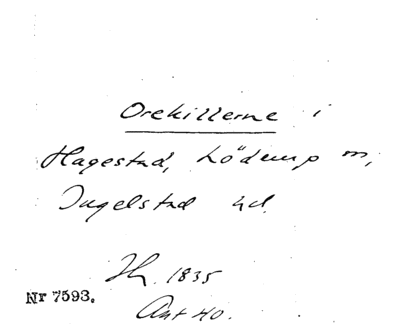 Orekillerne i
Hagestad, Löderup m,
Ingelstad hd.
Hz. 1835
Nr 7593.
Ant 40.